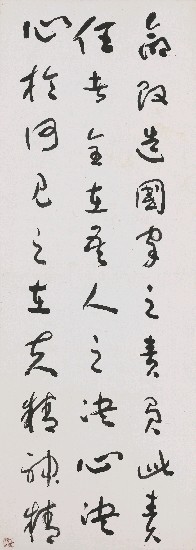 改造國家之責負此責
任者全在吾人之決心決
心於何見之在夫精神精